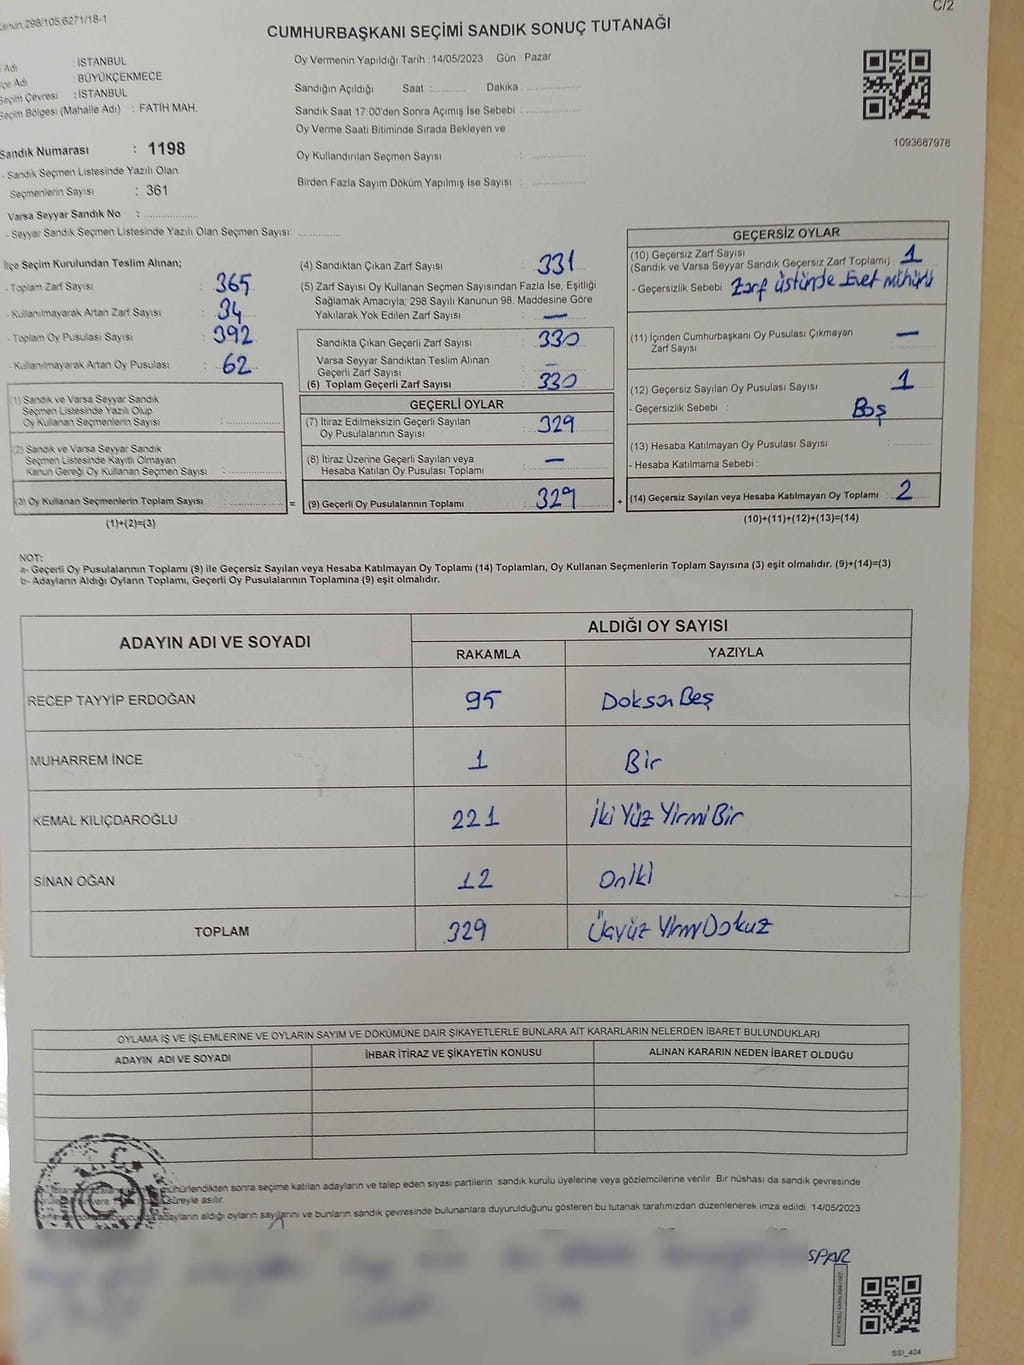 Kanun.298/105,6271/18-1
C/2
CUMHURBAŞKANI SEÇİMİ SANDIK SONUÇ TUTANAĞI
Adı : İSTANBUL
İlçe Adı : BÜYÜKÇEKMECE
Seçim Çevresi : İSTANBUL
Seçim Bölgesi (Mahalle Adı) : FATİH MAH.
Sandık Numarası : 1198
- Sandık Seçmen Listesinde Yazılı Olan
Seçmenlerin Sayısı : 361
Varsa Seyyar Sandık No : ..................
- Seyyar Sandık Seçmen Listesinde Yazılı Olan Seçmen Sayısı: ..............
Oy Vermenin Yapıldığı Tarih : 14/05/2023 Gün : Pazar
Sandığın Açıldığı Saat :........... Dakika .................
Sandık Saat 17:00'den Sonra Açımış İse Sebebi : .................
Oy Verme Saati Bitiminde Sırada Bekleyen ve
Oy Kullandırılan Seçmen Sayısı : .................
Birden Fazla Sayım Döküm Yapılmış İse Sayısı : .................
1093687978
İlçe Seçim Kurulundan Teslim Alınan;
- Toplam Zarf Sayısı : 365
- Kullanılmayarak Artan Zarf Sayısı : 34
- Toplam Oy Pusulası Sayısı : 392
- Kullanılmayarak Artan Oy Pusulası : 62
(1) Sandık ve Varsa Seyyar Sandık
Seçmen Listesinde Yazılı Olup
Oy Kullanan Seçmenlerin Sayısı : .................
(2) Sandık ve Varsa Seyyar Sandık
Seçmen Listesinde Kayıtlı Olmayan
Kanun Gereği Oy Kullanan Seçmen Sayısı : .................
(3) Oy Kullanan Seçmenlerin Toplam Sayısı : ................. =
(1)+(2)=(3)
(4) Sandıktan Çıkan Zarf Sayısı : 331
(5) Zarf Sayısı Oy Kullanan Seçmen Sayısından Fazla İse, Eşitliği
Sağlamak Amacıyla; 298 Sayılı Kanunun 98. Maddesine Göre
Yakılarak Yok Edilen Zarf Sayısı : —
Sandıkta Çıkan Geçerli Zarf Sayısı : 330
Varsa Seyyar Sandıktan Teslim Alınan
Geçerli Zarf Sayısı : —
(6) Toplam Geçerli Zarf Sayısı : 330
GEÇERLİ OYLAR
(7) İtiraz Edilmeksizin Geçerli Sayılan
Oy Pusulalarının Sayısı : 329
(8) İtiraz Üzerine Geçerli Sayılan veya
Hesaba Katılan Oy Pusulası Toplamı : —
(9) Geçerli Oy Pusulalarının Toplamı : 329 +
GEÇERSİZ OYLAR
(10) Geçersiz Zarf Sayısı
(Sandık ve Varsa Seyyar Sandık Geçersiz Zarf Toplamı) : 1
- Geçersizlik Sebebi : Zarf üstünde Evet mührü
(11) İçinden Cumhurbaşkanı Oy Pusulası Çıkmayan
Zarf Sayısı : —
(12) Geçersiz Sayılan Oy Pusulası Sayısı : 1
- Geçersizlik Sebebi : Boş
(13) Hesaba Katılmayan Oy Pusulası Sayısı :
- Hesaba Katılmama Sebebi :
(14) Geçersiz Sayılan veya Hesaba Katılmayan Oy Toplamı : 2
(10)+(11)+(12)+(13)=(14)
NOT:
a- Geçerli Oy Pusulalarının Toplamı (9) ile Geçersiz Sayılan veya Hesaba Katılmayan Oy Toplamı (14) Toplamları, Oy Kullanan Seçmenlerin Toplam Sayısına (3) eşit olmalıdır. (9)+(14)=(3)
b- Adayların Aldığı Oyların Toplamı, Geçerli Oy Pusulalarının Toplamına (9) eşit olmalıdır.
ADAYIN ADI VE SOYADI ALDIĞI OY SAYISI
RAKAMLA YAZIYLA
RECEP TAYYİP ERDOĞAN 95 Doksan Beş
MUHARREM İNCE 1 Bir
KEMAL KILIÇDAROĞLU 221 İki Yüz Yirmi Bir
SİNAN OĞAN 12 Oniki
TOPLAM 329 Üçyüz Yirmi Dokuz
OYLAMA İŞ VE İŞLEMLERİNE VE OYLARIN SAYIM VE DÖKÜMÜNE DAİR ŞİKAYETLERLE BUNLARA AİT KARARLARIN NELERDEN İBARET BULUNDUKLARI
ADAYIN ADI VE SOYADI İHBAR İTİRAZ VE ŞİKAYETİN KONUSU ALINAN KARARIN NEDEN İBARET OLDUĞU
mühürlendikten sonra seçime katılan adayların ve talep eden siyasi partilerin sandık kurulu üyelerine veya gözlemcilerine verilir. Bir nüshası da sandık çevresinde
süreyle asılır.
adayların aldığı oyların sayılarını ve bunların sandık çevresinde bulunanlara duyurulduğunu gösteren bu tutanak tarafımızdan düzenlenerek imza edildi. 14/05/2023
SPAR
SSI_404